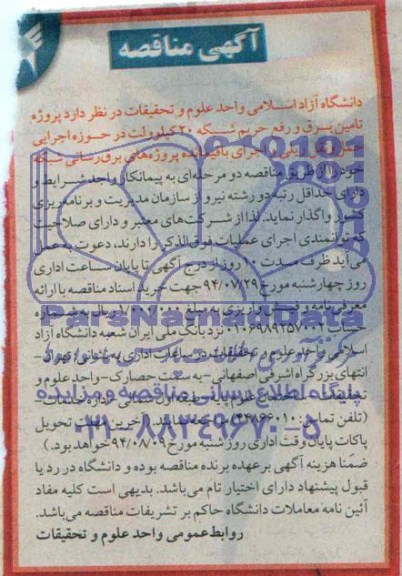 آگهی مناقصه
دانشگاه آزاد اسلامی واحد علوم و تحقیقات در نظر دارد پروژه
تامین برق و رفع حریم شبکه ۲۰ کیلوولت در حوزه اجرایی
اجرای باقیمانده پروژه‌های برق‌رسانی شبکه
خود را از طریق مناقصه دو مرحله‌ای به پیمانکاران واجد شرایط و
دارای حداقل رتبه دو رشته نیرو از سازمان مدیریت و برنامه‌ریزی
کشور واگذار نماید. لذا از شرکت‌های معتبر و دارای صلاحیت
که توانمندی اجرای عملیات فوق‌الذکر را دارند، دعوت به عمل
می‌آید ظرف مدت ۱۰ روز از درج آگهی تا پایان ساعت اداری
روز چهارشنبه مورخ ۹۴/۰۷/۲۹ جهت خرید اسناد مناقصه با ارائه
معرفی‌نامه و
نزد بانک ملی ایران شعبه دانشگاه آزاد
اسلامی واحد علوم و تحقیقات در ساعات اداری به نشانی: تهران-
انتهای بزرگراه اشرفی اصفهانی- به سمت حصارک- واحد علوم و
تحقیقات-
(تلفن تماس: ۴۴۸۶۶۰۱۰) آخرین مهلت تحویل
پاکات پایان وقت اداری روز شنبه مورخ ۹۴/۰۸/۰۹ خواهد بود.)
ضمنا هزینه آگهی بر عهده برنده مناقصه بوده و دانشگاه در رد یا
قبول پیشنهاد دارای اختیار تام می‌باشد. بدیهی است کلیه مفاد
آئین نامه معاملات دانشگاه حاکم بر تشریفات مناقصه می‌باشد.
روابط عمومی واحد علوم و تحقیقات
ParsNamadData
پایگاه اطلاع رسانی مناقصه و مزایده
۰۲۱-۸۸۳۴۹۶۷۰-۵